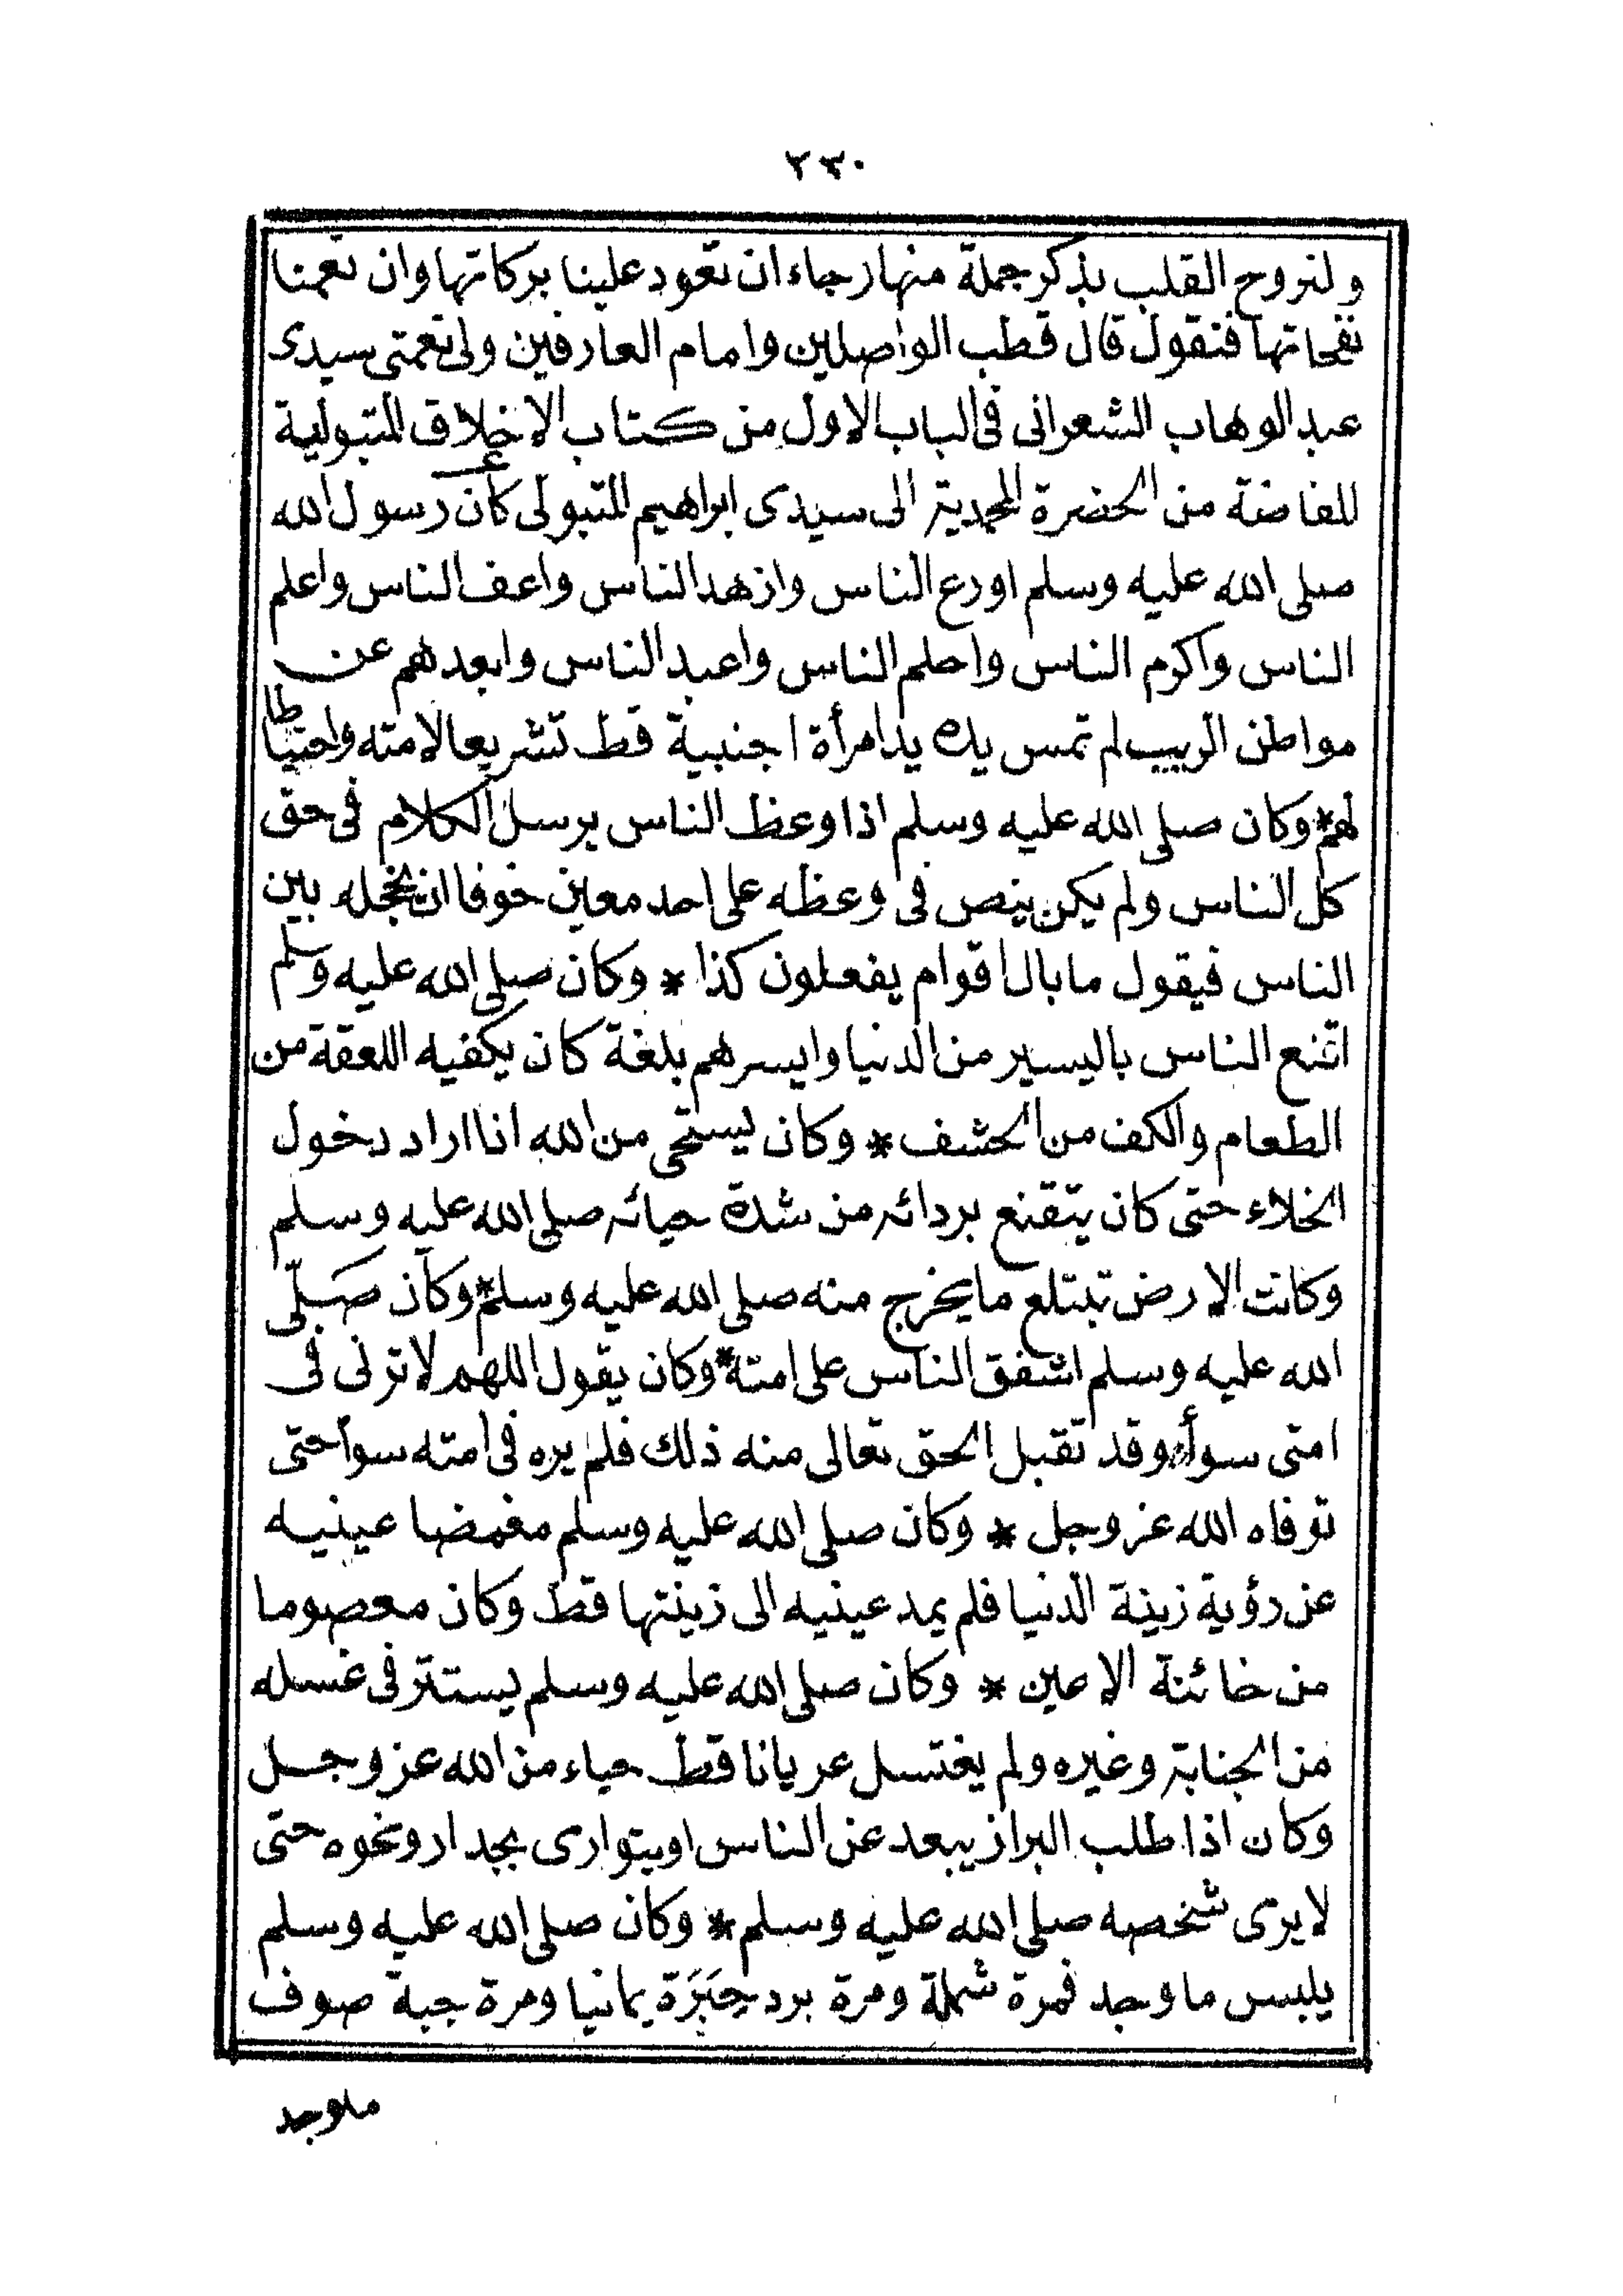 ٢٣٠
ولنروح القلب بذكر جملة منها رجاء ان تعود علينا بركاتها وان تعمنا
نفحاتها فنقول قال قطب الواصلين وامام العارفين ولى نعمتى سيدى
عبد الوهاب الشعرانى فى الباب الاول من كتاب الاخلاق المتبولية
المفاضة من الحضرة المحمدية الى سيدى ابراهيم المتبولى كان رسول الله
صلى الله عليه وسلم اورع الناس وازهد الناس واعف الناس واعلم
الناس واكرم الناس واحلم الناس واعبد الناس وابعدهم عن
مواطن الريب لم تمس يده يد امرأة اجنبية قط تشريعا لامته واحتياطا
لهم * وكان صلى الله عليه وسلم اذا وعظ الناس يرسل الكلام فى حق
كل الناس ولم يكن ينص فى وعظه على احد معين خوفا ان يخجله بين
الناس فيقول ما بال اقوام يفعلون كذا * وكان صلى الله عليه وسلم
اقنع الناس باليسير من الدنيا وايسرهم بلغة كان يكفيه اللعقة من
الطعام والكف من الحشف * وكان يستحى من الله اذا اراد دخول
الخلاء حتى كان يتقنع بردائه من شدة حيائه صلى الله عليه وسلم
وكانت الارض تبتلع ما يخرج منه صلى الله عليه وسلم * وكان صَلّى
الله عليه وسلم اشفق الناس على امته * وكان يقول اللهم لا ترنى فى
امتى سوأ وقد تقبل الحق تعالى منه ذلك فلم يره فى امته سوأ حتى
توفاه الله عز وجل * وكان صلى الله عليه وسلم مغمضا عينيه
عن رؤية زينة الدنيا فلم يمد عينيه الى زينتها قط وكان معصوما
من خائنة الاعين * وكان صلى الله عليه وسلم يستتر فى غسله
من الجنابة وغيره ولم يغتسل عريانا قط حياء من الله عز وجل
وكان اذا طلب البراز يبعد عن الناس او يتوارى بجدار ونحوه حتى
لا يرى شخصه صلى الله عليه وسلم * وكان صلى الله عليه وسلم
يلبس ما وجد فمرة شملة ومرة برد حِبَرَة يمانيا ومرة جبة صوف
ما وجد